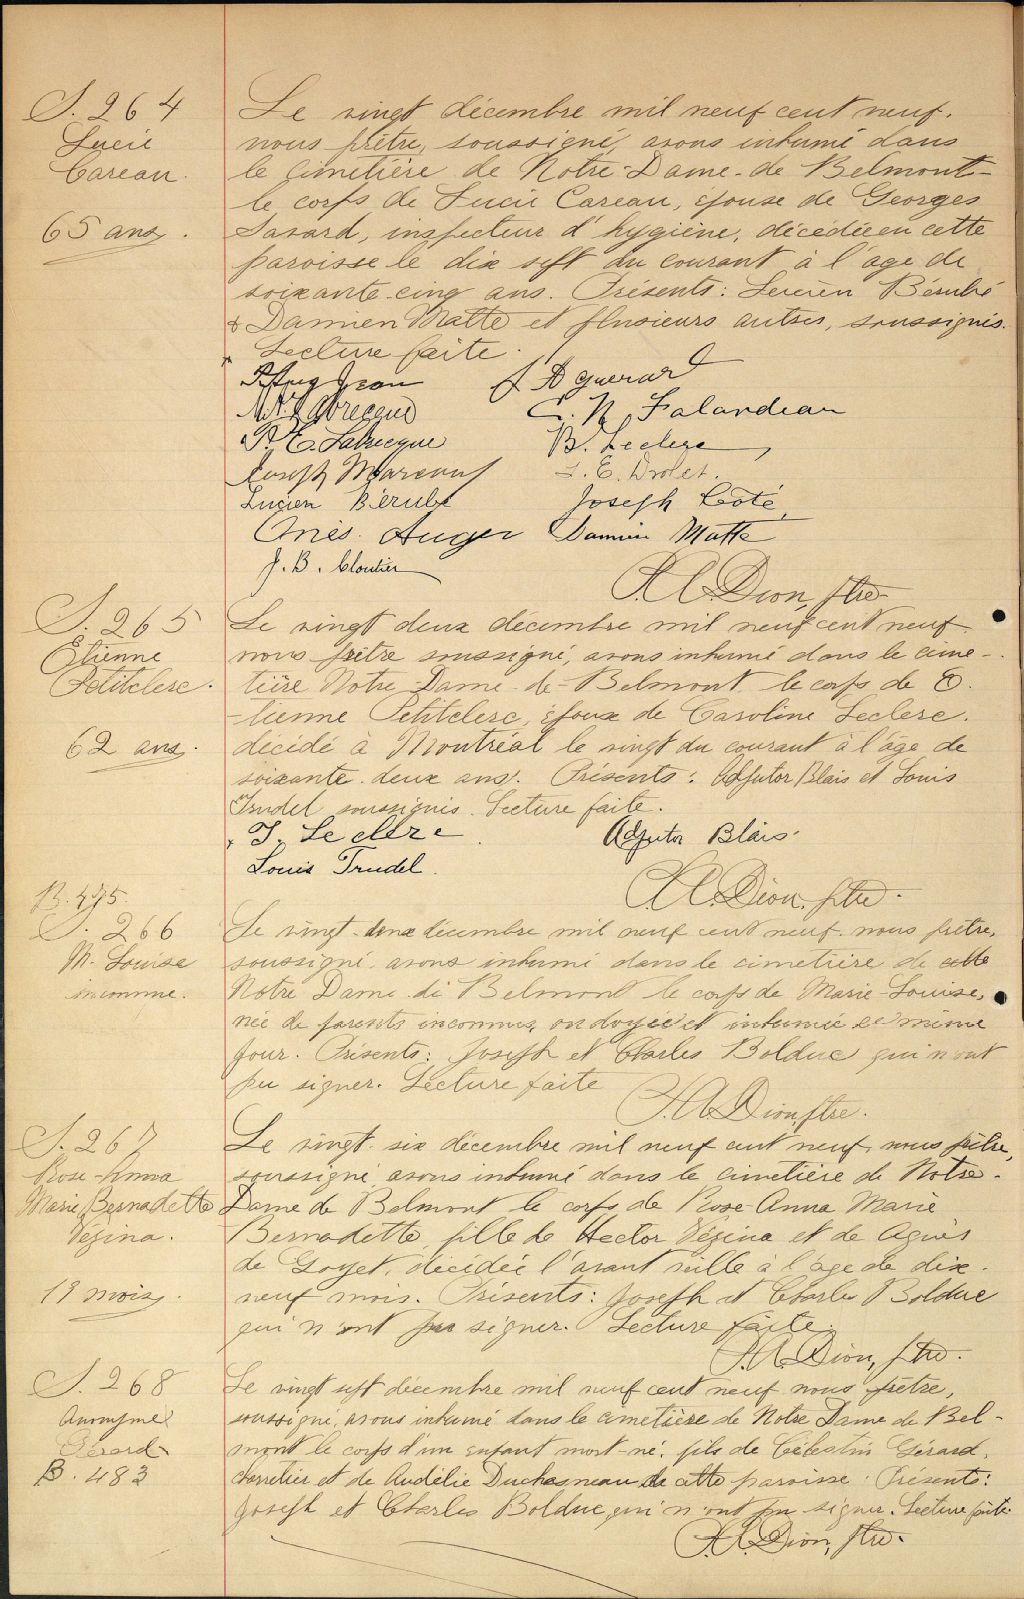 S. 264
Lucie
Careau.
65 ans.
Le vingt décembre mil neuf cent neuf.
nous prêtre, soussigné, avons inhumé dans
le cimetière de Notre-Dame-de Belmont-
le corps de Lucie Careau, épouse de Georges
Savard, inspecteur d'hygiène, décédée en cette
paroisse le dix sept du courant à l'âge de
soixante-cinq ans. Présents: Lucien Bérubé
& Damien Matte et plusieurs autres, soussignés.
Lecture faite.
J A Guerard
C. N. Falardeau
P. E. Labrecque
B. Leclerc
Joseph Marcoux
L. E. Drolet.
Lucien Bérubé
Joseph Côté,
Onés. Auger
Damien Matte
J. B. Cloutier
Dion, ptre
S. 265
Etienne
Petitclerc.
62 ans.
Le vingt deux décembre mil neuf cent neuf
nous prêtre soussigné, avons inhumé dans le cime-
tière Notre-Dame-de-Belmont le corps de E-
tienne Petitclerc, époux de Caroline Leclerc.
décédé à Montréal le vingt du courant à l'âge de
soixante-deux ans. Présents: Adjutor Blais et Louis
Trudel soussignés. Lecture faite.
J. Leclerc
Adjutor Blais
Louis Trudel.
Dion, ptre.
B. 475.
S. 266
M. Louise
inconnue.
Le vingt-deux décembre mil neuf cent neuf nous prêtre,
soussigné, avons inhumé dans le cimetière de cette
Notre Dame de Belmont le corps de Marie-Louise,
née de parents inconnus, ondoyée et inhumée ce même
jour. Présents: Joseph et Charles Bolduc qui n'ont
pu signer. Lecture faite
Dion, ptre.
S. 267
Rose-Anna
Marie Bernadette
Vézina.
19 mois.
Le vingt-six décembre mil neuf cent neuf, nous prêtre,
soussigné, avons inhumé dans le cimetière de Notre-
Dame de Belmont le corps de Rose-Anna Marie
Bernadette, fille de Hector Vézina et de Agnès
de Goyet, décédée l'avant veille à l'âge de dix-
neuf mois. Présents: Joseph et Charles Bolduc
qui n'ont pu signer. Lecture faite.
Dion, ptre.
S. 268
Anonyme
Gérard
B. 483
Le vingt sept décembre mil neuf cent neuf nous prêtre,
soussigné, avons inhumé dans le cimetière de Notre Dame de Bel-
mont le corps d'un enfant mort-né, fils de Célestin Gérard,
charretier et de Audélie Duchesneau de cette paroisse. Présents:
Joseph et Charles Bolduc, qui n'ont pu signer. Lecture faite.
Dion, ptre.